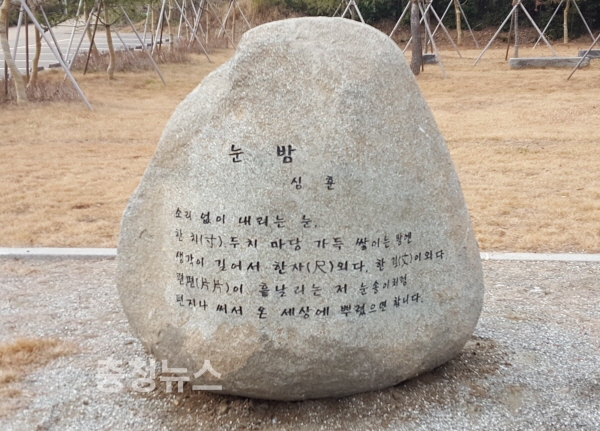 눈 밤
심 훈
소리 없이 내리는 눈,
한 치(寸), 두치 마당 가득 쌓이는 밤엔
생각이 길어서 한자(尺)외다, 한 길(丈)이외다.
편편(片片)이 흩날리는 저 눈송이처럼
편지나 써서 온 세상에 뿌렸으면 합니다.
충청뉴스